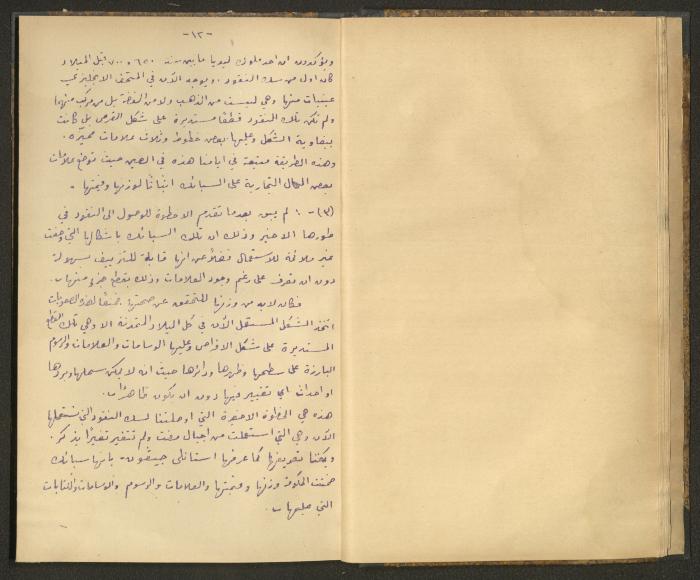 -١٢-
ويؤكدون ان احد ملوك ليديا ما بين سنة ٦٥٠ و ٧٠٠ قبل الميلاد
كان اول من سك النقود . ويوجد الآن في المتحف الانجليزي
عينات منها وهي ليست من الذهب ولا من الفضة بل من مركب منهما
ولم تكن تلك النقود قطعًا مستديرة على شكل القرص بل كانت
بيضاوية الشكل وعليها بعض خطوط وثلاث علامات مميزة .
وهذه الطريقة متبعة في ايامنا هذه في الصين حيث توضع علامات
بعض المحال التجارية على السبائك اثباتًا لوزنها وقيمتها .
(٣) - : لم يبق بعد ما تقدم الا خطوة للوصول الى النقود في
طورها الاخير وذلك ان تلك السبائك باشكالها التي وصفت
غير ملائمة للاستعمال فضلًا عن انها قابلة للتزييف بسهولة
دون ان تعرف على رغم وجود العلامات وذلك بقطع جزء منها .
فكان لابد من وزنها للتحقق من صحتها .
اتخذ الشكل المستقل الآن في كل البلاد المتمدنة الا وهي تلك القطع
المستديرة على شكل الاقراص وعليها الوسامات والعلامات والرسوم
البارزة على سطحها وظهرها ودائرها حيث انه لا يمكن
او احداث اي تغيير فيها دون ان يكون ظاهرًا .
هذه هي الخطوة الاخيرة التي اوصلتنا لسك النقود التي نستعملها
الآن وهي التي استعملت من اجيال مضت ولم تتغير تغيرًا يذكر .
ويمكننا تعريفها كما عرفها استانلي جيفونس بانها سبائك
ضمنت الحكومة وزنها وقيمتها والعلامات والرسوم والوسامات والكتابات
التي عليها .